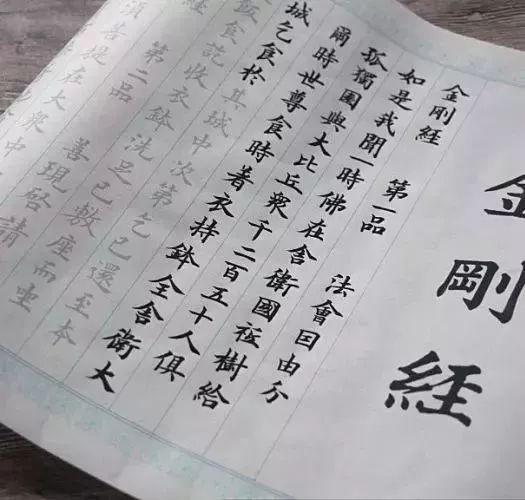 金剛経
金剛経 第一品 法會因由分
如是我聞一時佛在舍衛國祇樹給
孤獨園與大比丘衆千二百五十人俱
爾時世尊食時著衣持鉢全舍衛大
城乞食於其城中次第乞已還至本
飯食訖收衣鉢洗足已敷座而坐
経 第二品 善現啓請
須菩提在大衆中